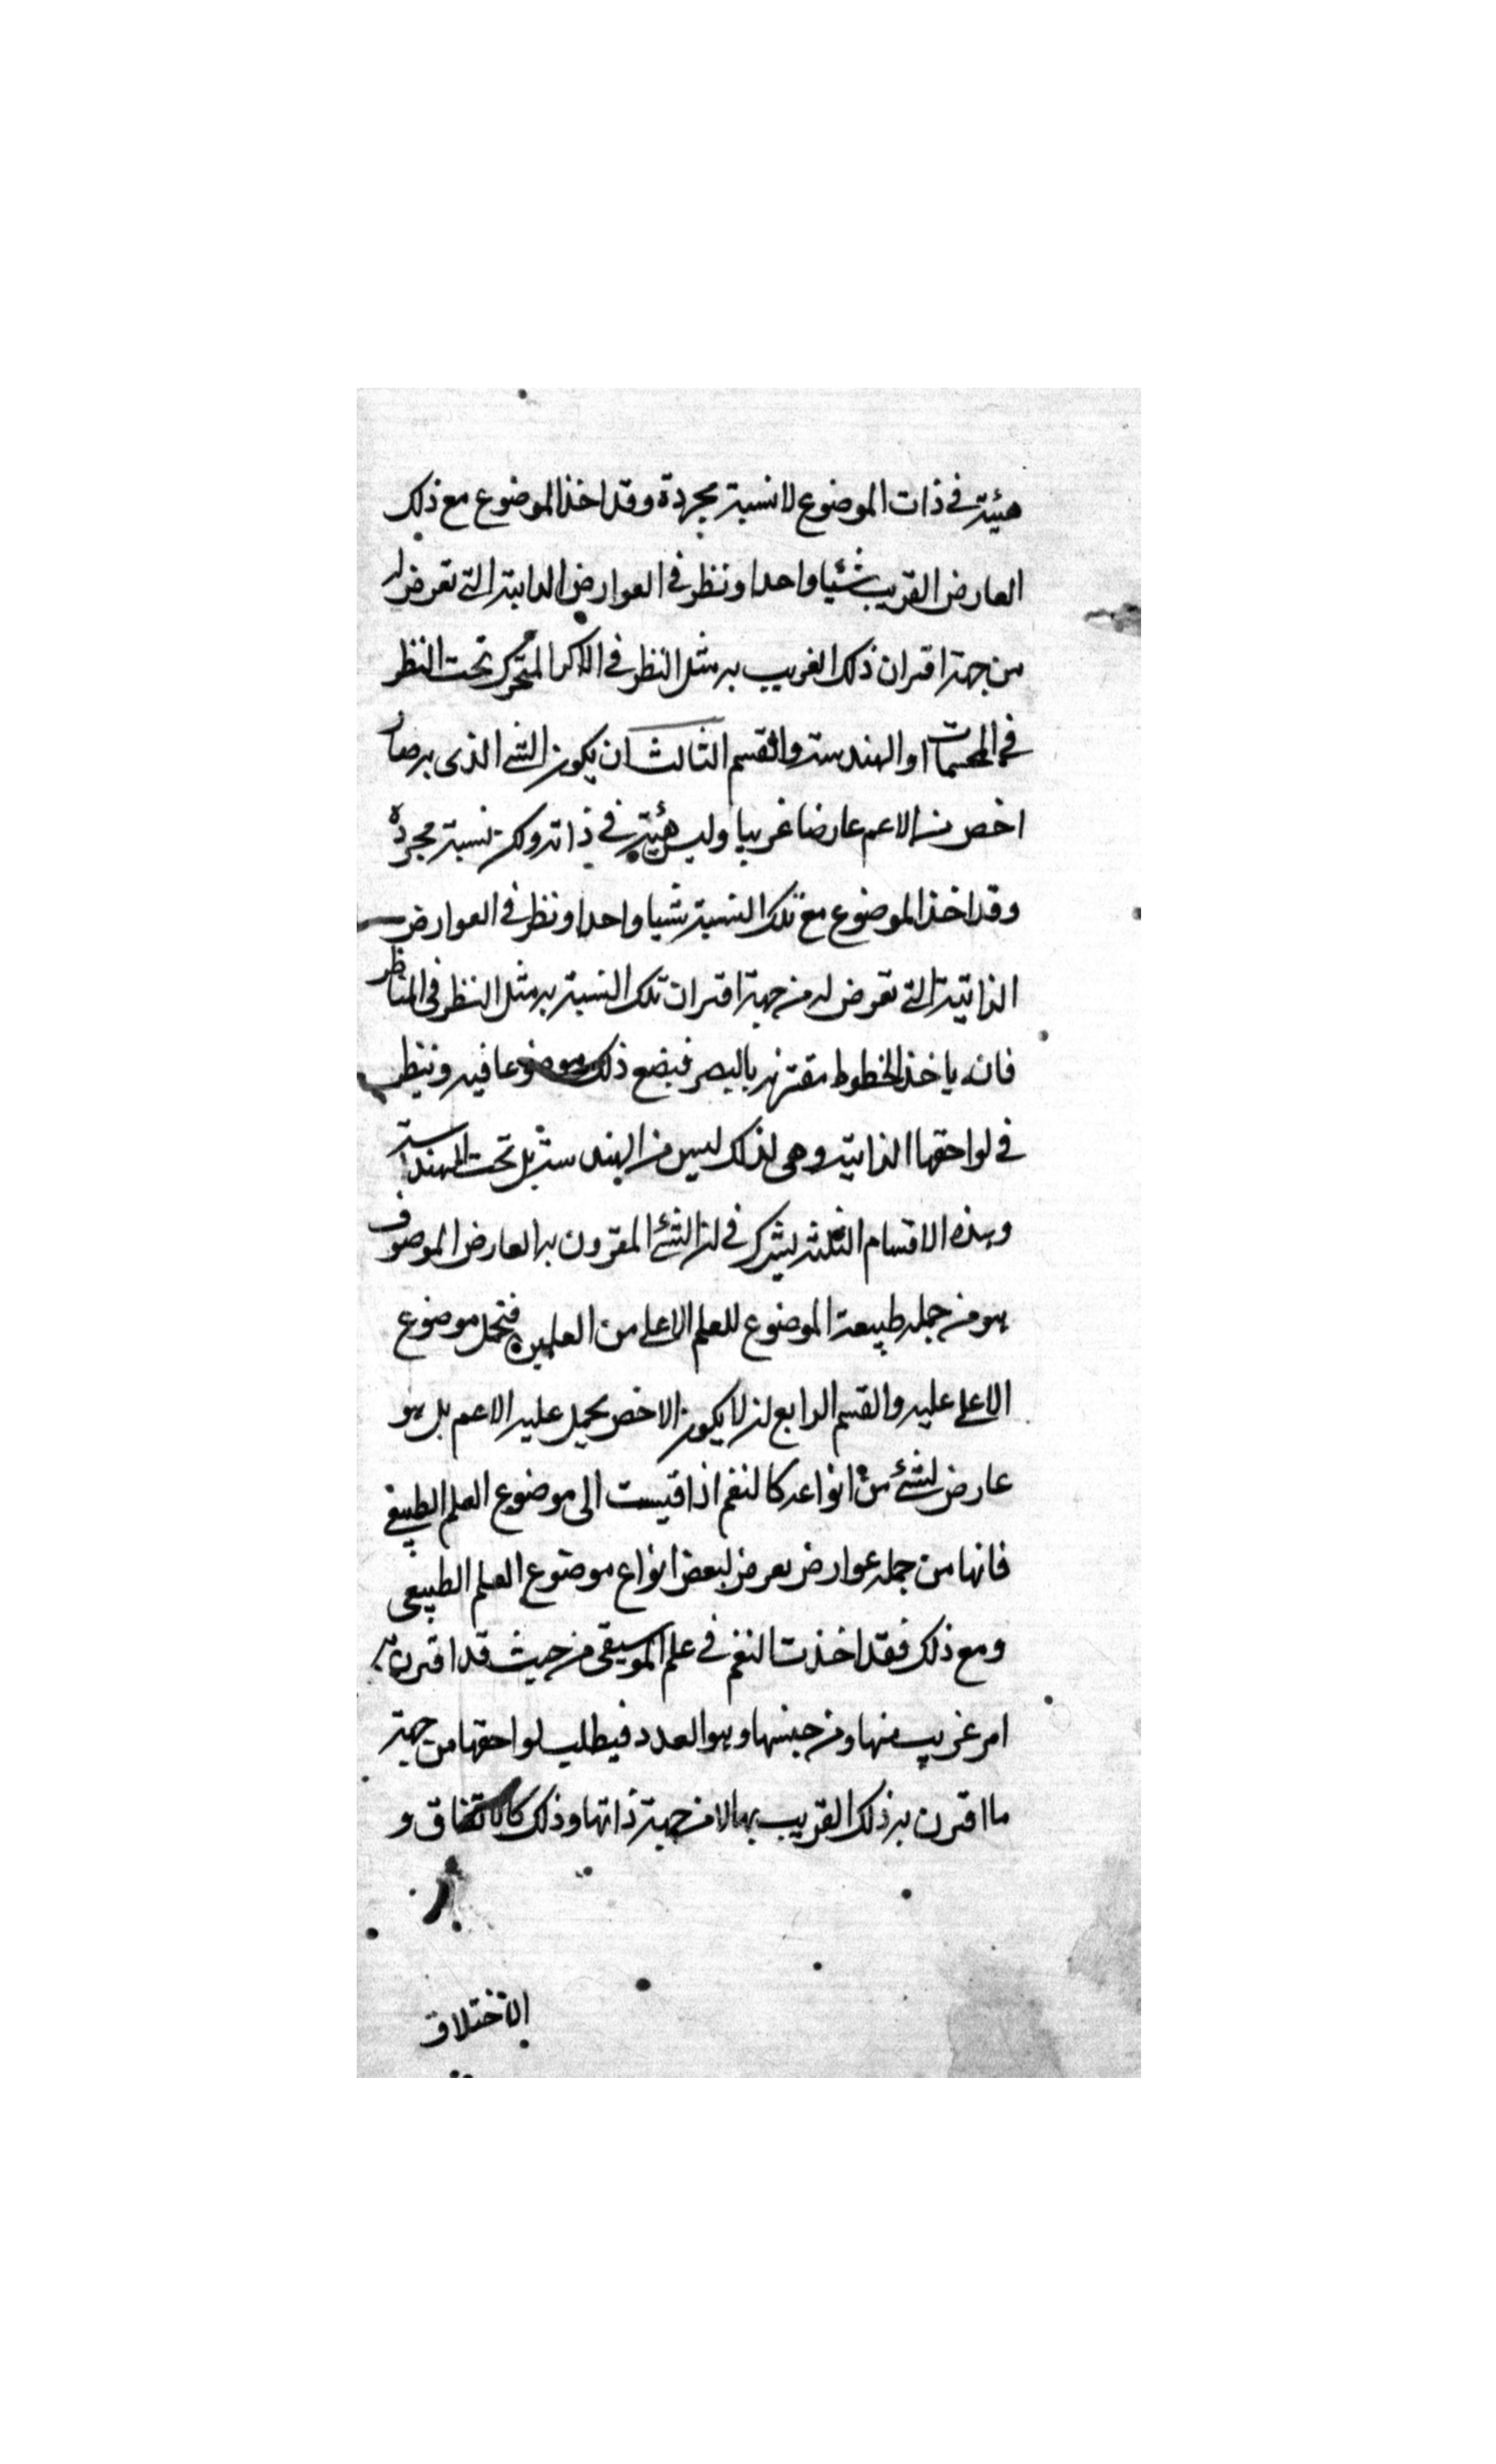 هيئة في ذات الموضوع لا نسبة مجردة وقد اخذ الموضوع مع ذلك
العارض القريب شيئا واحدا ونظر في العوارض الداتية التي تعرض له
من جهة اقتران ذلك الغريب به مثل النظر في الاكر المتحركة تحت النظر
في المجسمات او الهندسة والقسم الثالث ان يكون الشئ الذى به صار
اخص من الاعم عارضا غريبا وليس هيئة في ذاته ولكن نسبة مجردة
وقد اخذ الموضوع مع تلك النسبة شيا واحدا ونظر في العوارض
الذاتية التي تعرض له من جهة اقتران تلك النسبة به مثل النظر في المناظر
فانه ياخذ الخطوط مقترنة بالبصر فيضع ذلك موضوعا فيه وينظر
في لواحقها الذاتية وهى لذلك ليس من الهندسة بل تحت الهندسة
وهذه الاقسام الثلثة يشترك في ان الشئ المقرون به العارض الموصوف
هو من جملة طبيعة الموضوع للعلم الاعلى من العلمين فتحمل موضوع
الاعلى عليه والقسم الرابع ان لا يكون الاخص يحمل عليه الاعم بل هو
عارض لشئ من انواعه كالنغم اذا قيست الى موضوع العلم الطبيعى
فانها من جملة عوارض يعرض لبعض انواع موضوع العلم الطبيعى
ومع ذلك فقد اخذت النغم في علم الموسيقى من حيث قد اقترن به
امر غريب منها ومن جنسها وهو العدد فيطلب لواحقها من جهة
ما اقترن به ذلك القريب بها لا من جهة ذاتها وذلك كالاتفاق و
الاختلاف